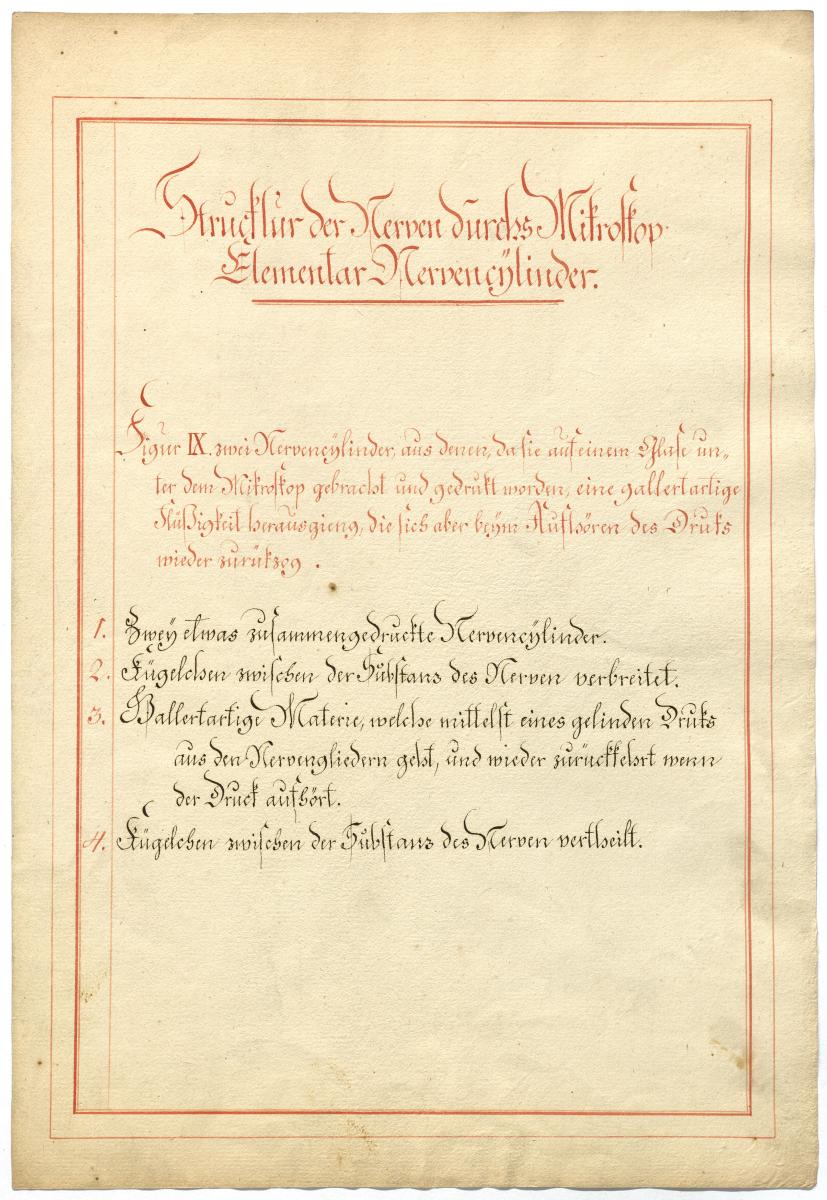 Strucktur der Nerven durchs Mikroskop
Elementar Nervencÿlinder.
Figur IX. zwei Nervencÿlinder, aus denen, da sie auf einem Glase un„
ter dem Mikroskop gebracht und gedrukt worden, eine gallertartige
Flüßigkeit herausgieng, die sich aber beÿm Aufhören des Druks
wieder zurükzog .
1. Zweÿ etwas zusammengedruckte Nervencÿlinder.
2. Kügelchen zwischen der Substans des Nerven verbreitet.
3. Gallertartige Materie, welche mittelst eines gelinden Druks
aus den Nervengliedern geht, und wieder zurückkehrt wenn
der Druck aufhört.
4. Kügelchen zwischen der Substans des Nerven vertheilt.